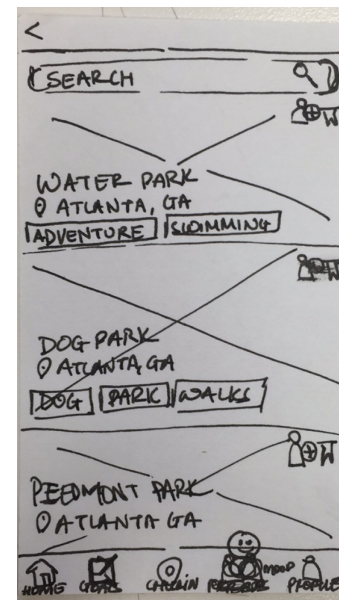 <
SEARCH
WATER PARK
ATLANTA, GA
ADVENTURE SWIMMING
DOG PARK
ATLANTA, GA
DOG PARK WALKS
PIEDMONT PARK
ATLANTA GA
HOME GOALS CHECKIN MOOD PROFILE